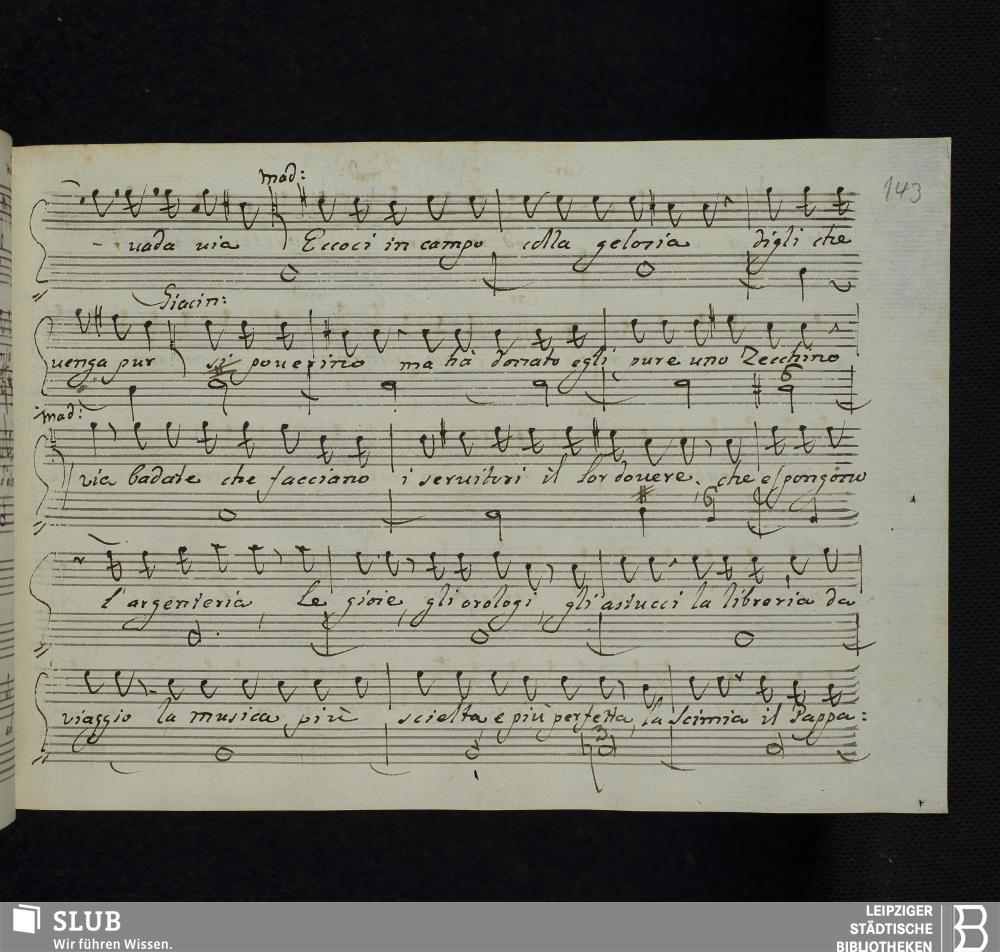 143
mad:
- uada uia Eccoci in campo colla gelosia digli che
Giacin:
uenga pur si pouerino ma hà donato egli pure uno Zecchino
6
mad:
via badate che facciano i seruitori il lor douere, che espongono
6
l'argenteria, Le gioie, gli orologi, gli astucci la libreria da
viaggio la musica più scielta e più perfetta, la Scimia il Pappa:
SLUB
Wir führen Wissen.
LEIPZIGER
STÄDTISCHE
BIBLIOTHEKEN